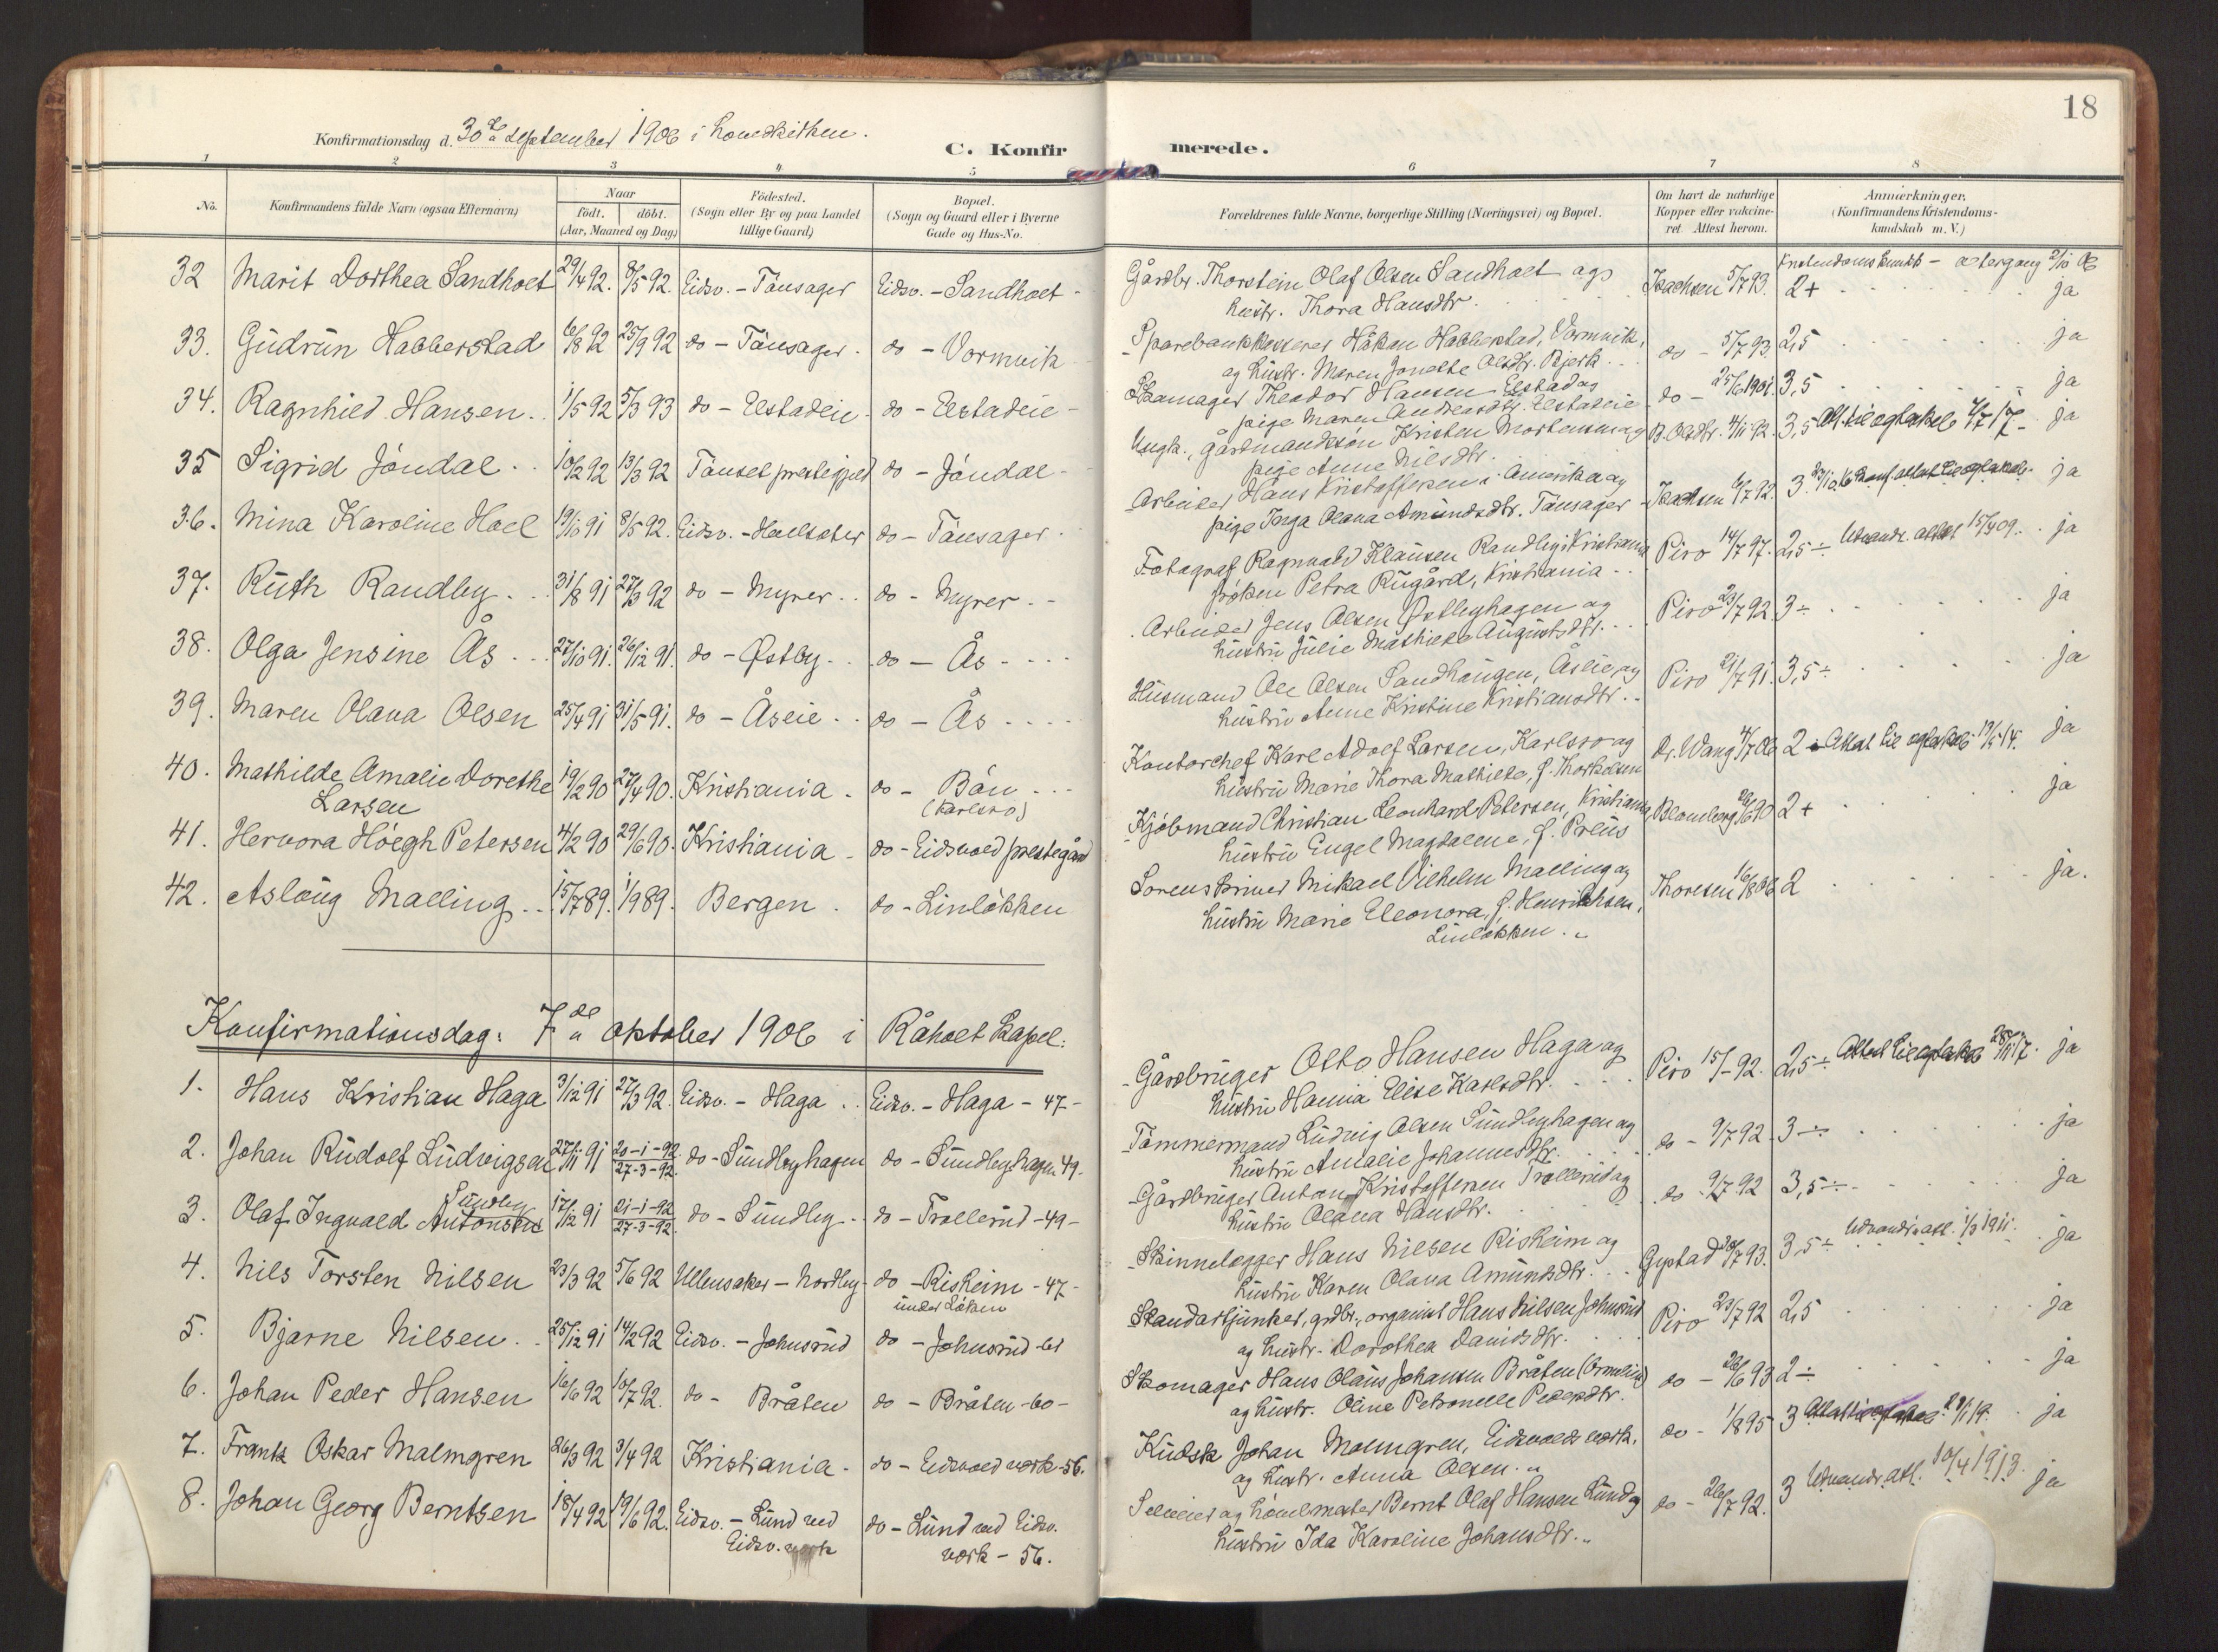 18
Konfirmationsdag d. 30te september 1906 i hovedkirken.
C. Konfirmerede.
1 2 3 4 5 6 7 8
No.
Konfirmandens fulde Navn (ogsaa Efternavn)
Naar
födt. döbt.
(Aar, Maaned og Dag)
Födested.
(Sogn eller By og paa Landet
tillige Gaard)
Bopæl.
(Sogn og Gaard eller i Byerne
Gade og Hus-No.
Forældrenes fulde Navne, borgerlige Stilling (Næringsvei) og Bopæl.
Om havt de naturlige
Kopper eller vakcine-
ret. Attest herom.
Anmærkninger.
(Konfirmandens Kristendoms-
kundskab m. V.)
Kristendomskundsk - altergang 2/10 06
32 Marit Dorthea Sandholt 29/4 92. 8/5 92. Eidsv. - Tønsager Eidsv. - Sandholt - Gårdbr. Thorstein Olaf Olsen Sandholt og Isachsen 5/7 93. 2+ ja
hustr. Thora Hansdtr.
33. Gudrun Habberstad 6/8 92 25/9 92 do - Tønsager. do - Vormvik Sparebankkasserer Håkon Habberstad, Vormvik, do - 5/7 93. 2,5 ja
og hustr. Maren Jonette Olsdtr. Bjerk.
34. Ragnhild Hansen. 1/5 92 5/3 93 do - Elstadeie - do - Elstadeie - Skomager Theodor Hansen Elstad og do - 25/6 1901. 3,5 ja
pige Maren Andreasdtr. Elstadeie
35 Sigrid Jøndal 10/2 92 13/3 92 Tønset prestegjeld do - Jøndal - Ungk., gårdmandssøn Kristen Mortensen og B. Olsdtr. 4/11 92. 3,5 ja
pige Anne Nilsdtr.
36. Mina Karoline Hoel 19/10 91 8/5 92. Eidsv. - Hoelsæter do - Tønsager. Arbeider Hans Kristoffersen i Amerika og Isachsen 6/7 92. 3. ja
pige Inga Olava Amundsdtr. Tønsager
37. Ruth Randby 31/8 91 27/3 92 do - Myrer do - Myrer. Fotograf Ragnvald Klausen Randby i Kristiania Piro 14/7 97. 2,5 ÷ Utvandr. attest 15/4 09. ja
frøken Petra Rugård, Kristiania
38. Olga Jensine Ås 27/10 91. 26/12 91. do - Østby do - Ås Arbeider Jens Olsen Østbyhagen og Piro 23/7 92. 3 ÷ ja
hustru Julie Mathilde Augustsdtr.
39. Maren Olava Olsen 25/4 91 31/5 91. do - Åseie do - Ås Husmand Ole Olsen Sandhaugen, Åseie, og Piro 21/7 91. 3,5 ÷ ja
hustru Anne Kristine Kristiansdtr.
40. Mathilde Amalie Dorethe 19/2 90 27/4 90. Kristiania. do - Bøn Kontorchef Karl Adolf Larsen, Karlsro og Dr. Wang 4/7 06 2 Attest til 13/5 14. ja
Larsen (Karlsro) hustru Marie Thora Mathilde, f. Thorkelsen
41. Hervora Høegh Petersen 4/2 90 29/6 90. Kristiania - do - Eidsvold prestegård Kjøbmand Christian Leonhard Petersen, Kristiania Blomberg 2+ ja
hustru Engel Magdalene, f. Preus
42. Aslaug Malling 15/7 89. 1/9 89. Bergen. do - Linløkken Sorenskriver Mikael Vilhelm Malling og Thoresen 16/8 06 2 ja.
hustru Marie Eleonora, f. Henrichsen,
Linløkken.
Konfirmationsdag: 7de oktober 1906 i Råholt Kapel:
1. Hans Kristian Haga 3/12 91 27/3 92. Eidsv. - Haga Eidsv. - Haga - 47 - Gårdbruger Otto Hansen Haga og Piro 15/- 92. 2,5 ÷ ja
hustru Hanna Elise Karlsdtr.
2. Johan Rudolf Ludvigsen 27/11 91 20-1-92 27-3-92. do - Sundbyhagen do - Sundbyhagen 49. Tømmermand Ludvig Olsen Sundbyhagen og do - 9/7 92. 3 ÷ ja
hustru Amalie Johannesdtr.
Sundby
3. Olaf Ingvald Antonsen 17/12 91 21-1-92 27-3-92. do - Sundby do - Trøllerud - 49 - Gårdbruger Anton Kristoffersen Trøllerud og do - 9/7 92 3,5 ÷ ja
hustru Olava Hansdtr.
4. Nils Torsten Nilsen 23/3 92 5/6 92 Ullensaker - Nordby do - Risheim - 47 - Skinnelegger Hans Nilsen Risheim og Gystad 30/7 93. 3,5 ÷ Udvandr. att. 1/3 1911. ja
under Løken hustru Karen Olava Amundsdtr.
5. Bjarne Nilsen 25/12 91 14/2 92 Eidsv. - Johnsrud do - Johnsrud - 61 Standartjunker, grdbr., organist Hans Nilsen Johnsrud Piro 23/7 92 2,5 ja
og hustr. Dorothea Davidsdtr.
6. Johan Peder Hansen 16/6 92 10/7 92. do - Bråten do - Bråten - 60 - Skomager Hans Olaus Johansen Bråten (Ormlien) do - 26/6 93 2 ÷ ja
og hustr. Oline Petronelle Pedersdtr.
7. Frantz Oskar Malmgren 26/3 92 3/4 92 Kristiania - do - Eidsvold verk - 56. Kudsk Johan Malmgren, Eidsvolds verk, do - 1/8 95 3 ja
og hustr. Anna Olsen.
8. Johan Georg Berntsen 18/4 92 19/6 92. Eidsv. - Lund ved do - Lund ved Eidsv. Selveier og høvelmester Bernt Olaf Hansen Lund og do - 26/7 92. 3 Udvandr. att. 10/4 1913. ja
Eidsv. verk verk - 56. hustru Ida Karoline Johansdtr.